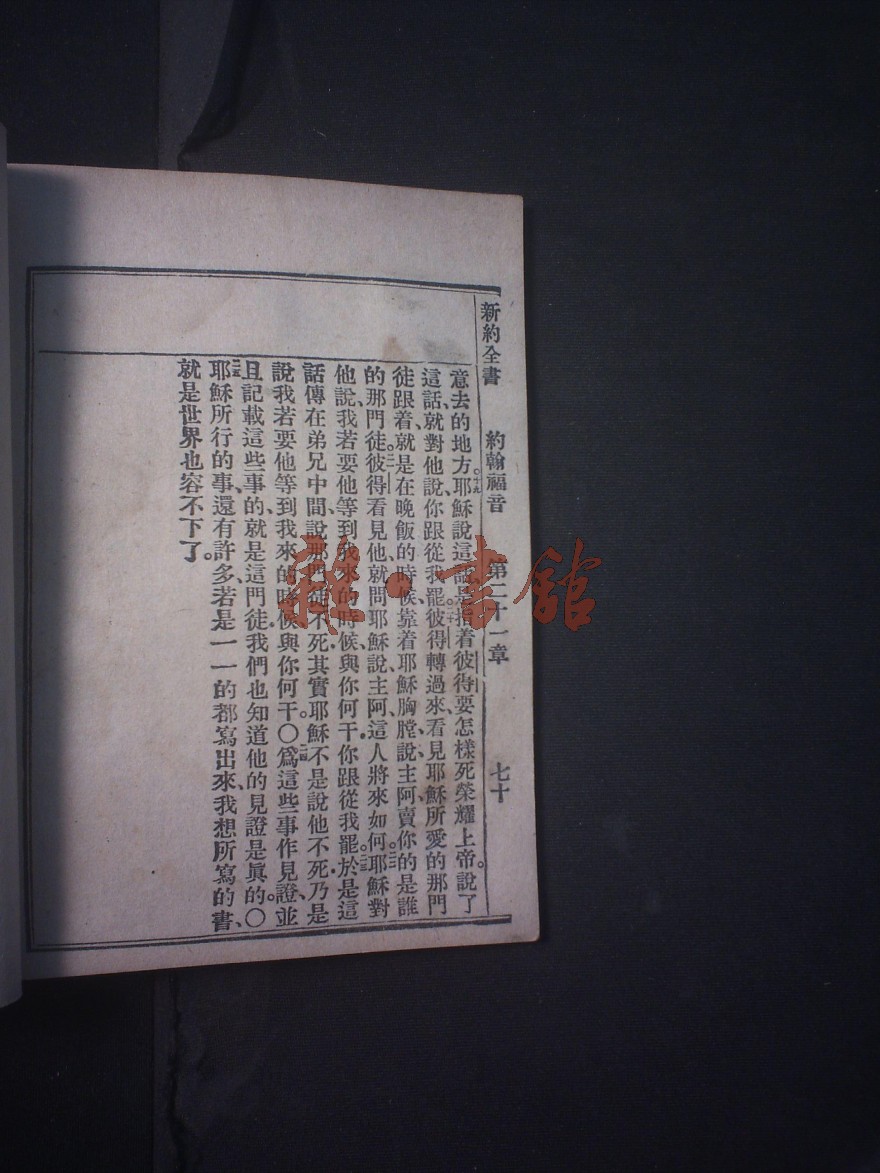 新約全書 約翰福音 第二十一章 七十
意去的地方。十九耶穌說這話、是指着彼得要怎樣死、榮耀上帝。說了
這話、就對他說、你跟從我罷。二十彼得轉過來、看見耶穌所愛的那門
徒跟着、就是在晚飯的時候、靠着耶穌胸膛、說主阿、賣你的是誰
的那門徒。二一彼得看見他、就問耶穌說、主阿、這人將來如何。二二耶穌對
他說、我若要他等到我來的時候、與你何干、你跟從我罷。二三於是這
話傳在弟兄中間、說那門徒不死、其實耶穌不是說他不死、乃是
說我若要他等到我來的時候、與你何干。〇二四爲這些事作見證、並
且記載這些事的、就是這門徒、我們也知道他的見證是眞的。〇
二五耶穌所行的事、還有許多、若是一一的都寫出來、我想所寫的書、
就是世界也容不下了。
雜·書館